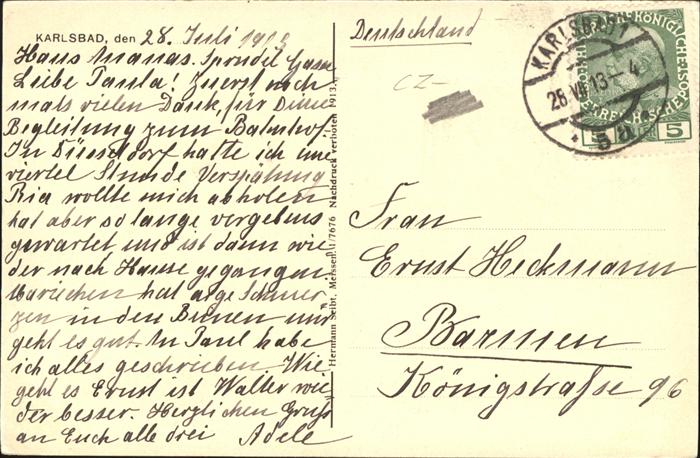 KARLSBAD, den 28. Juli 1913
Haus Ananas. Sprudel Gasse
Liebe Paula! Zuerst noch
mals vielen Dank, für Deine
Begleitung zum Bahnhof.
In Düsseldorf hatte ich eine
viertel Stunde Verspätung
Ria wollte mich abholen
hat aber so lange vergebens
gewartet und ist dann wie
der nach Hause gegangen.
Mariechen hat arge Schmer
zen in den Beinen mir
geht es gut. An Paul habe
ich alles geschrieben. Wie
geht es Ernst ist Walter wie
der besser. Herzlichen Gruß
an Euch alle drei Adele
Hermann Seibt, Meissen, 1/7676 Nachdruck verboten 1913.
Deutschland
CZ-
KARLSBAD 1
28 VII 13 - 4
* 5a *
5 5
Frau
Ernst Heckmann
Barmen
Königstraße 96